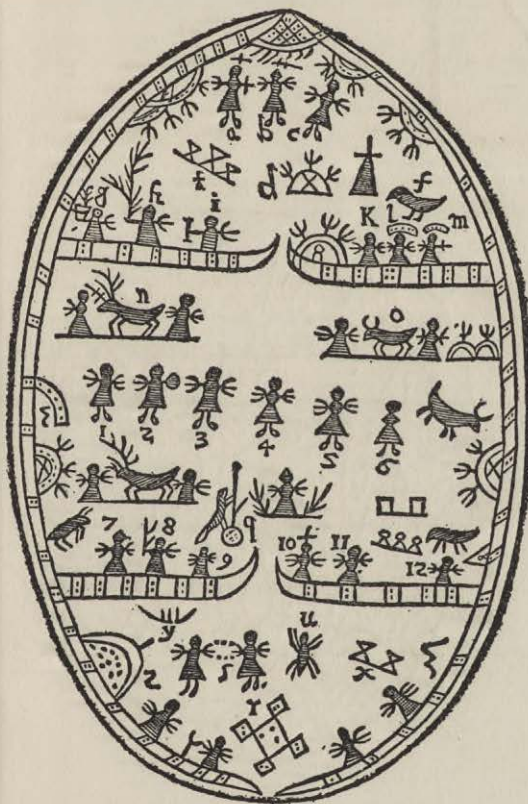 a b c
t d f
g h i K l m
n o
1 2 3 4 5 6
7 8 9 q 10 11 12
y u
z s x
r